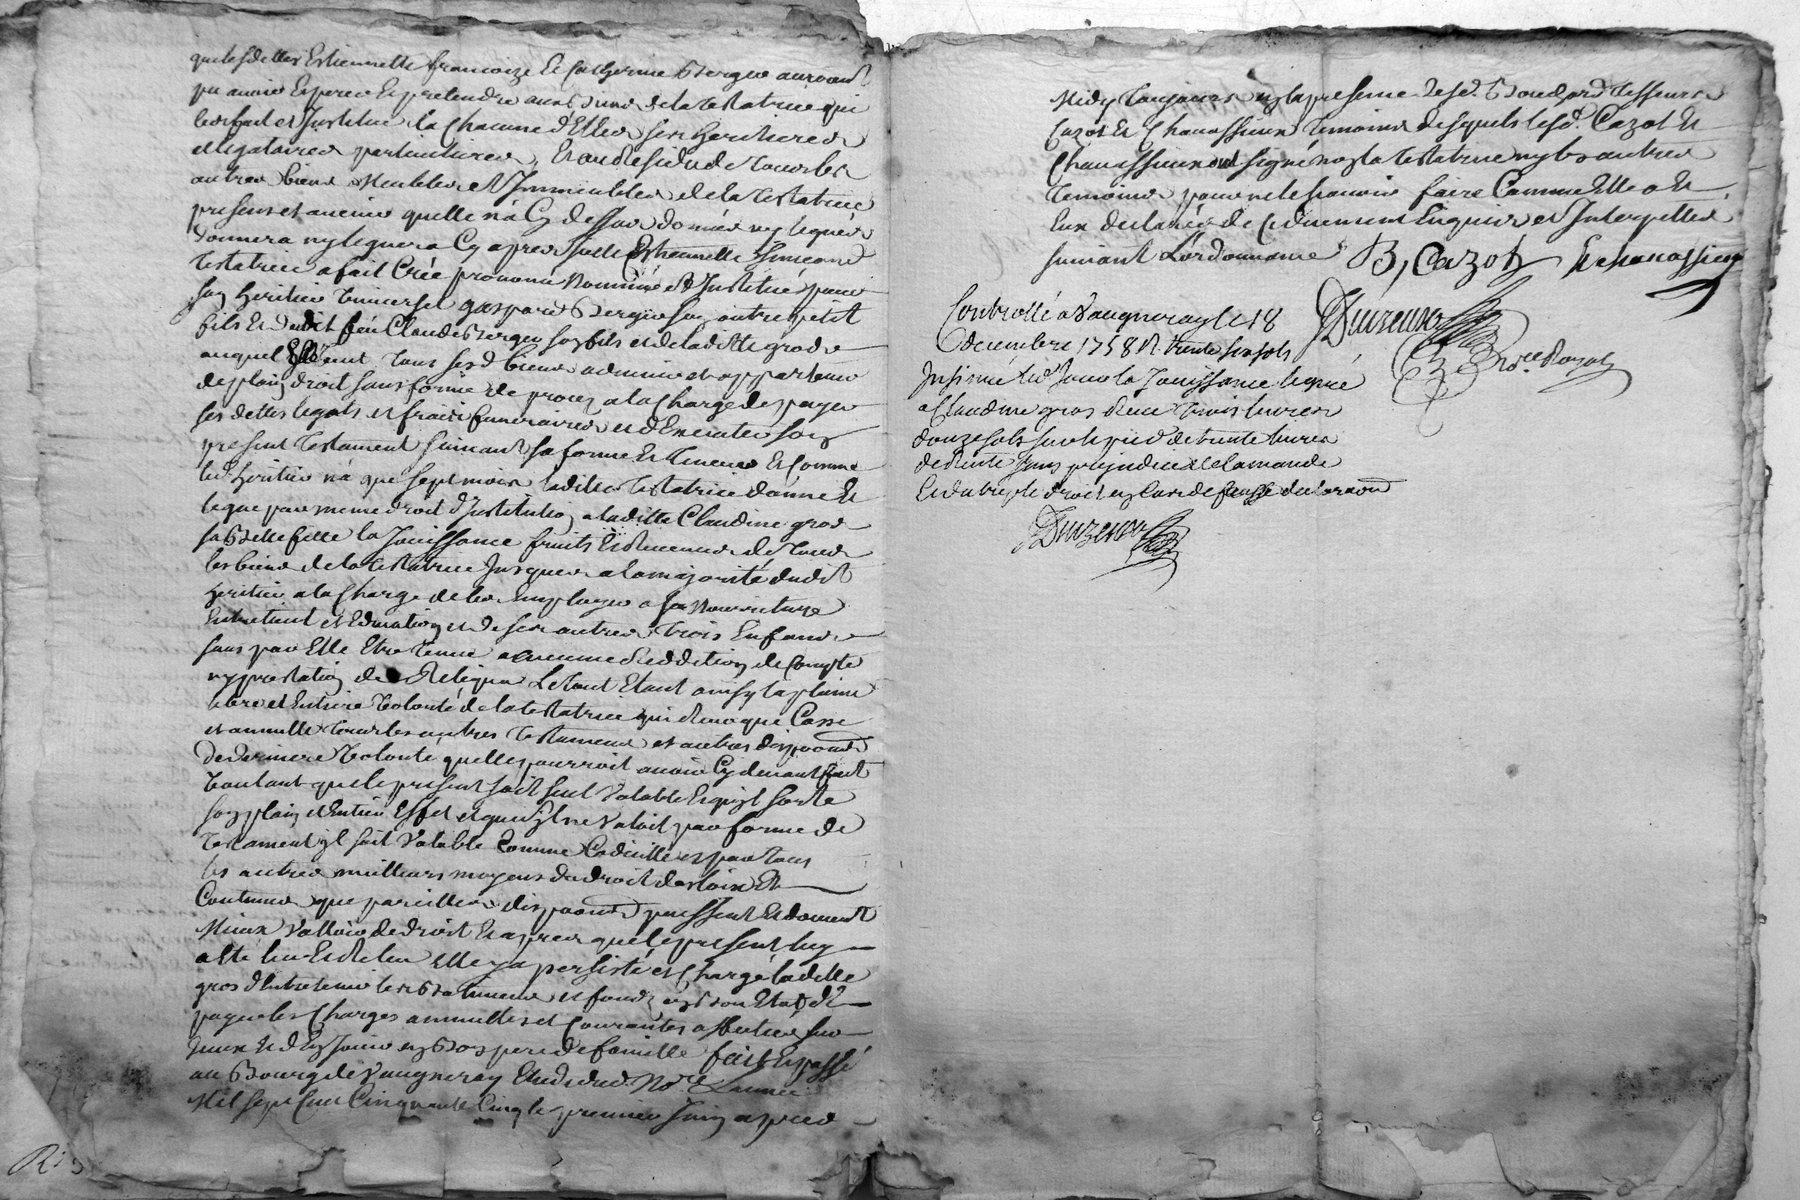 quelesdittes Estiennette francoize Et Catherine Bergeu auroient
pu avoir Esperer Et pretendre aux Biens dela testatrice qui
les fait et Jnstitue la Chacune d'Elles ses heritieres
et legataires particulieres, Et au Residu de tous les
autres biens Meubles et Jmmeubles dela testatrice
presens et avenir quelle n'a Cy dessus donnés ny legués
donnera ny leguera Cy apres
testatrice a fait Créé prononcé Nommé et Jnstitué pour
son heritier universel gaspard Bergeu son autre petit
fils Et dudit feu Claude Bergeu son fils et deladitte gros
auquel Elle veut tous sesd. biens advenir et appartenir
de plain droit sans forme de procez ala Charge de payer
ses dettes legats et fraix funeraires et d'Executer son
present testament suivant sa forme Et teneur Et Comme
led. heritier n'a que sept mois laditte testatrice donne Et
legue par meme droit d'Jnstitution aladitte Claudine gros
sa Belle fille la Jouissance fruits Et Revenus de tous
les biens de la testatrice Jusques ala majorité dudit
heritier ala Charge deles Employer a sa Nourriture
Entretient et Education et de ses autres trois Enfans
sans par Elle Etre tenue a aucune Reddition de Compte
ny prestation de Reliqua Le tout Etant ainsy la plaine
libre et Entiere Volonté de la testatrice qui Revoque Casse
et annulle tous les autres testamens et autres dispoons
de derniere Volonté quelle pourroit avoir Cy devant fait
Voulant que le present soit seul Valable Et qu'jl sorte
son plain et Entier Effet et que s'jl ne Valoit par forme de
testament jl soit Valable Comme Codicille et par tous
les autres meilleurs moyens de droit des loix Et
Coutumes que pareilles dispoons puissent Et doivent
Mieux Valloir de droit Et apres que le present luy
a Eté leu Et Releu Elle y a persisté et Chargé laditte
gros d'Entretenir les Batimens et fonds en bon Etat de
payer les Charges annuelles et Courantes affectées sur
Jceux Et d'En Jouir en Bon pere de famille fait Et passé
au Bourg de Vaugneray Etude dud. Nore. L'année
Mil sept Cent Cinquante Cinq le premier Juin apres
Midy toujours En la presence desd.
Cazot Et Chavassieux temoins desquels lesd. Cazot Et
Chavassieux ont signé non la testatrice ny les autres
temoins pour ne le sçavoir faire Comme Elle a Et
Eux declaré de Ce duement Enquis et Jnterpellés
suivant L'ordonnance B, Cazot Et chavassieu
Controllé a Vaugneray le 18
decembre 1758 R. trente six sols
Jnsinué led. Jour la Jouissance leguée
a Claudine gros Receu trois livres
douze sols sur le pied de trente livres
de Rente sans prejudice de l'amande
Et du triple droit en Cas de fausse declaraon